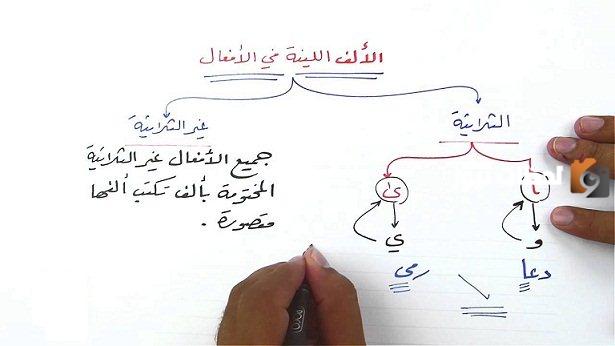 الألف اللينة في الأفعال
الثلاثية
غير الثلاثية
ا
ى
و
ي
دعا
رمى
جميع الأفعال غير الثلاثية
المختومة بألف تكتب ألفها
مقصورة .